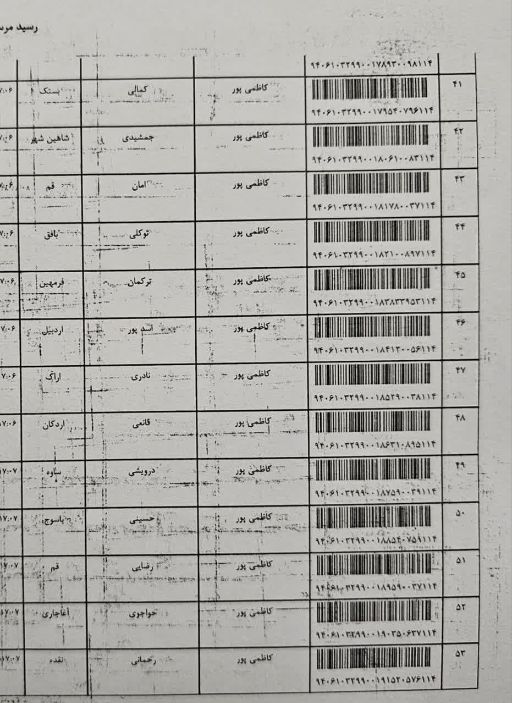 رسید
۹۴۰۶۱۰۳۲۹۹۰۰۱۷۸۹۳۰۰۹۸۱۱۴
۴۱ ۹۴۰۶۱۰۳۲۹۹۰۰۱۷۹۵۴۰۷۹۶۱۱۴ کاظمی پور کمالی بستک ۷:۰۶
۴۲ ۹۴۰۶۱۰۳۲۹۹۰۰۱۸۰۶۱۰۰۸۳۱۱۴ کاظمی پور جمشیدی شاهین شهر ۷:۰۶
۴۳ ۹۴۰۶۱۰۳۲۹۹۰۰۱۸۱۷۸۰۰۳۷۱۱۴ کاظمی پور امان قم ۷:۰۶
۴۴ ۹۴۰۶۱۰۳۲۹۹۰۰۱۸۲۱۰۰۸۹۷۱۱۴ کاظمی پور توکلی بافق ۷:۰۶
۴۵ ۹۴۰۶۱۰۳۲۹۹۰۰۱۸۳۸۳۳۹۵۳۱۱۴ کاظمی پور ترکمان فرمهین ۷:۰۶
۴۶ ۹۴۰۶۱۰۳۲۹۹۰۰۱۸۴۱۳۰۰۵۶۱۱۴ کاظمی پور اسد پور اردبیل ۷:۰۶
۴۷ ۹۴۰۶۱۰۳۲۹۹۰۰۱۸۵۲۹۰۰۳۸۱۱۴ کاظمی پور نادری اراک ۷:۰۶
۴۸ ۹۴۰۶۱۰۳۲۹۹۰۰۱۸۶۳۱۰۸۹۵۱۱۴ کاظمی پور قانعی اردکان ۱۷:۰۶
۴۹ ۹۴۰۶۱۰۳۲۹۹۰۰۱۸۷۵۹۰۰۳۹۱۱۴ کاظمی پور درویشی ساوه ۱۷:۰۷
۵۰ ۹۴۰۶۱۰۳۲۹۹۰۰۱۸۸۵۲۰۷۵۹۱۱۴ کاظمی پور حسینی یاسوج ۱۷:۰۷
۵۱ ۹۴۰۶۱۰۳۲۹۹۰۰۱۸۹۵۹۰۰۳۷۱۱۴ کاظمی پور رضایی قم ۱۷:۰۷
۵۲ ۹۴۰۶۱۰۳۲۹۹۰۰۱۹۰۳۵۰۶۳۷۱۱۴ کاظمی پور خواجوی آغاجاری ۱۷:۰۷
۵۳ ۹۴۰۶۱۰۳۲۹۹۰۰۱۹۱۵۲۰۵۷۶۱۱۴ کاظمی پور رحمانی نقده ۱۷:۰۷